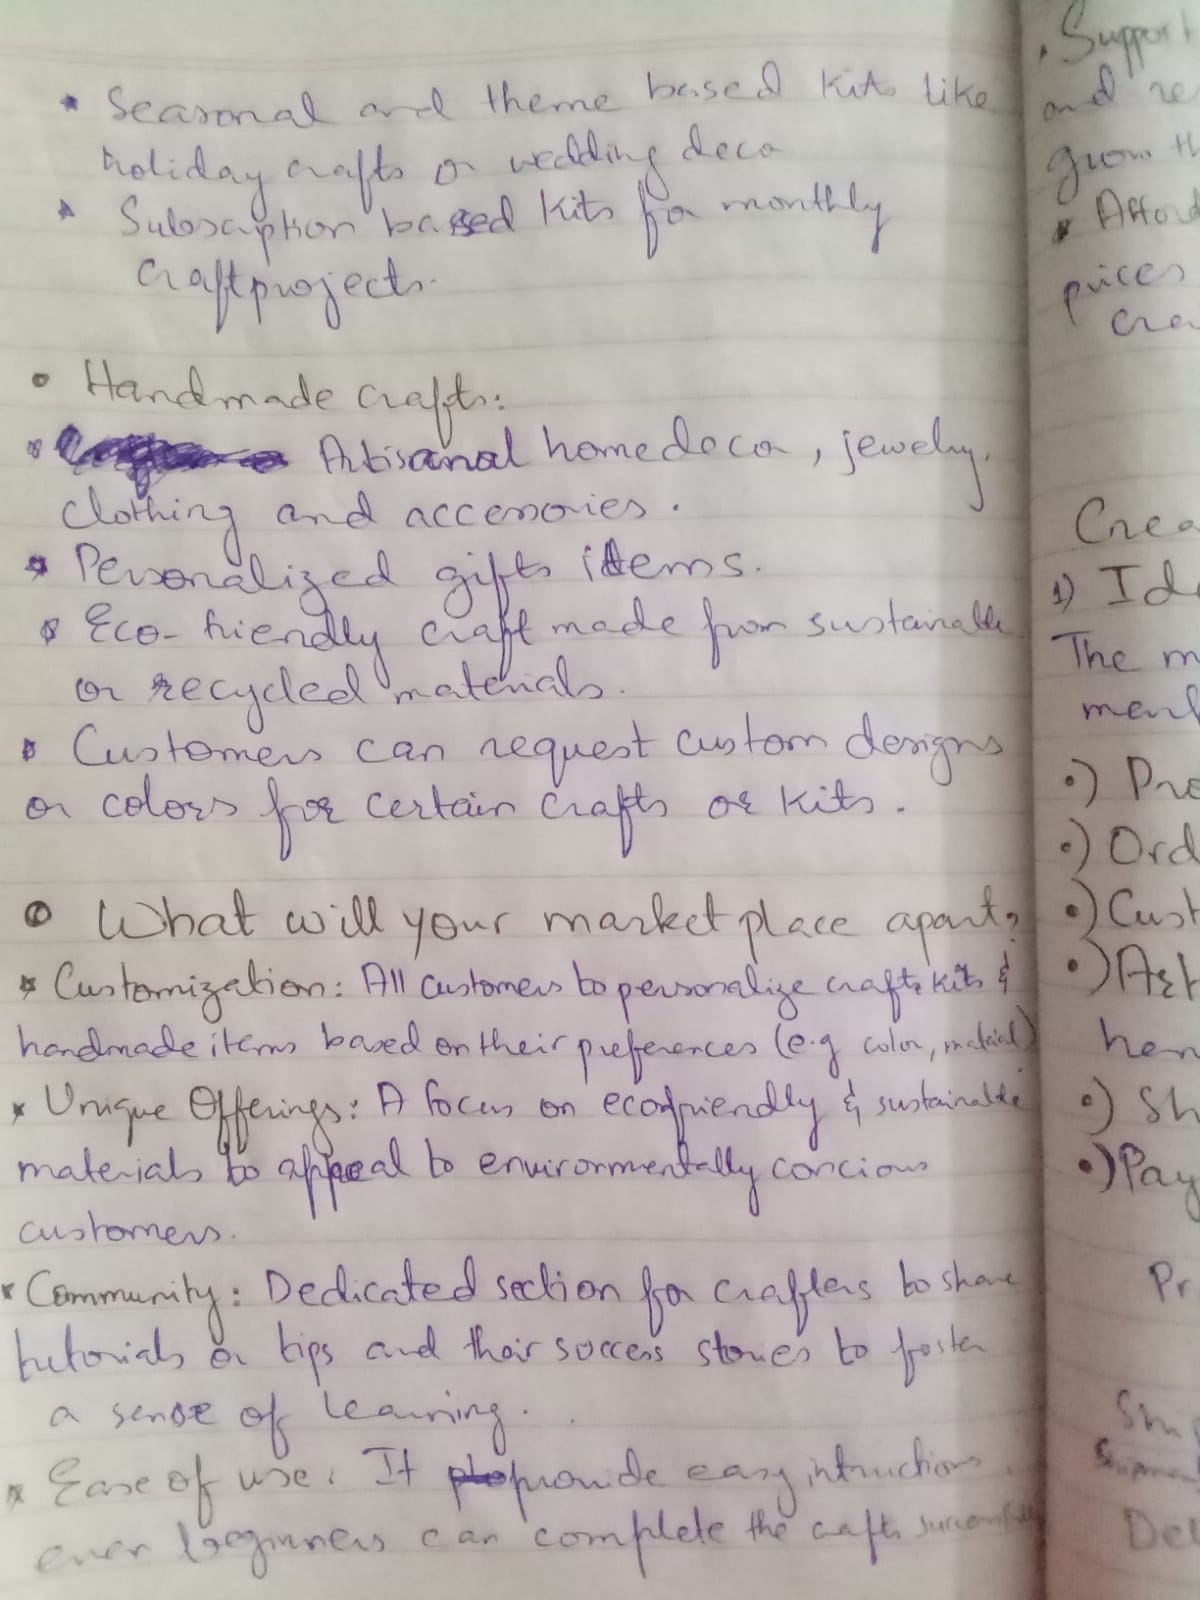 * Seasonal and theme based kits like
holiday crafts or wedding decor
* Subscription based kits for monthly
craft projects.
• Handmade crafts:
* Artisanal home decor, jewelry,
clothing and accessories.
* Personalized gifts items.
* Eco-friendly craft made from sustainable
or recycled materials.
* Customers can request custom designs
or colors for certain crafts or kits.
• What will your market place apart?
* Customization: All customers to personalize crafts kits &
handmade items based on their preferences (e.g color, material)
* Unique Offerings: A focus on ecofriendly & sustainable
materials to appeal to environmentally concious
customers.
* Community: Dedicated section for crafters to share
tutorials or tips and their success stories to foster
a sense of learning.
* Ease of use: It provide easy intructions.
even beginners can complete the crafts successfully
• Support
and re
grow th
* Afford
prices
Crea
1) Ide
The m
ment
•) Pro
•) Ord
•) Cust
•) Art
han
•) Sh
•) Pay
Pr
Ship
Del